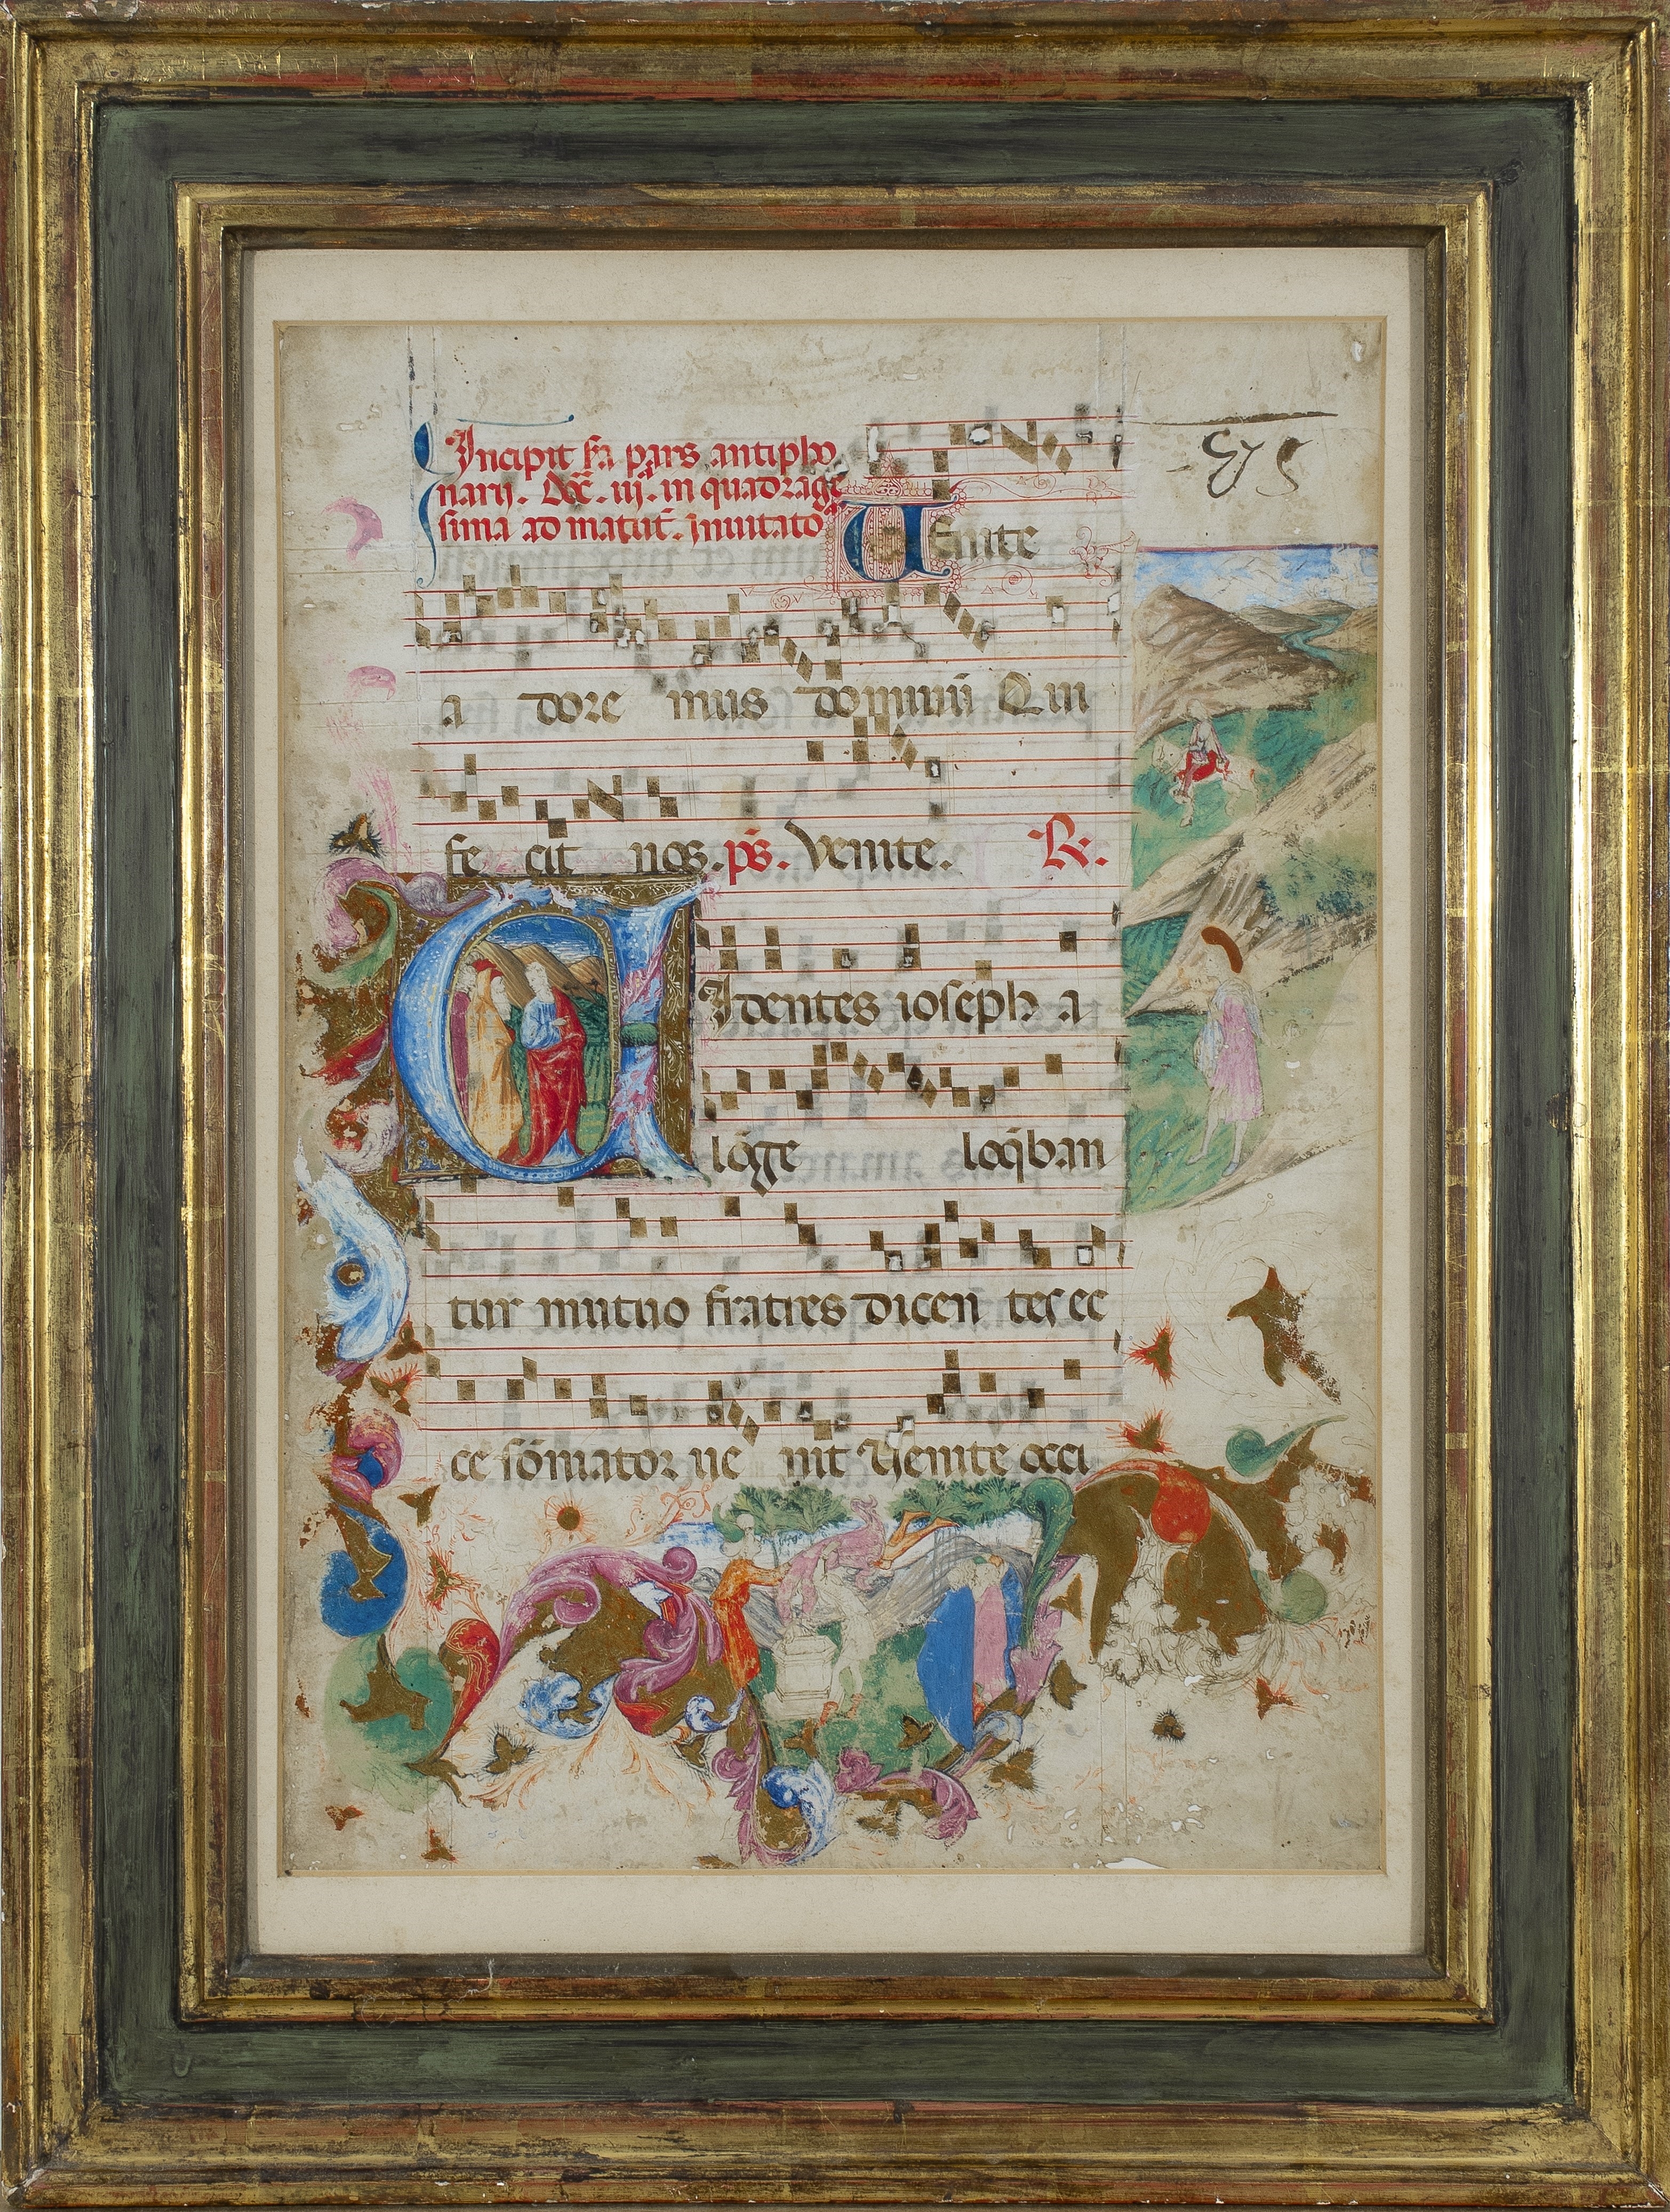 Incipit s̄a pars antipho
narij. Dōc. iij. in quadrage
sima ad matut̄. inuitato
Uenite
a dore mus dominū Qui
fe cit nos. ps̄. Venite. R.
UIdentes ioseph a
lōge loq̄ban
tur mutuo fratres dicen tes ec
ce sōniator ue nit Uenite occi